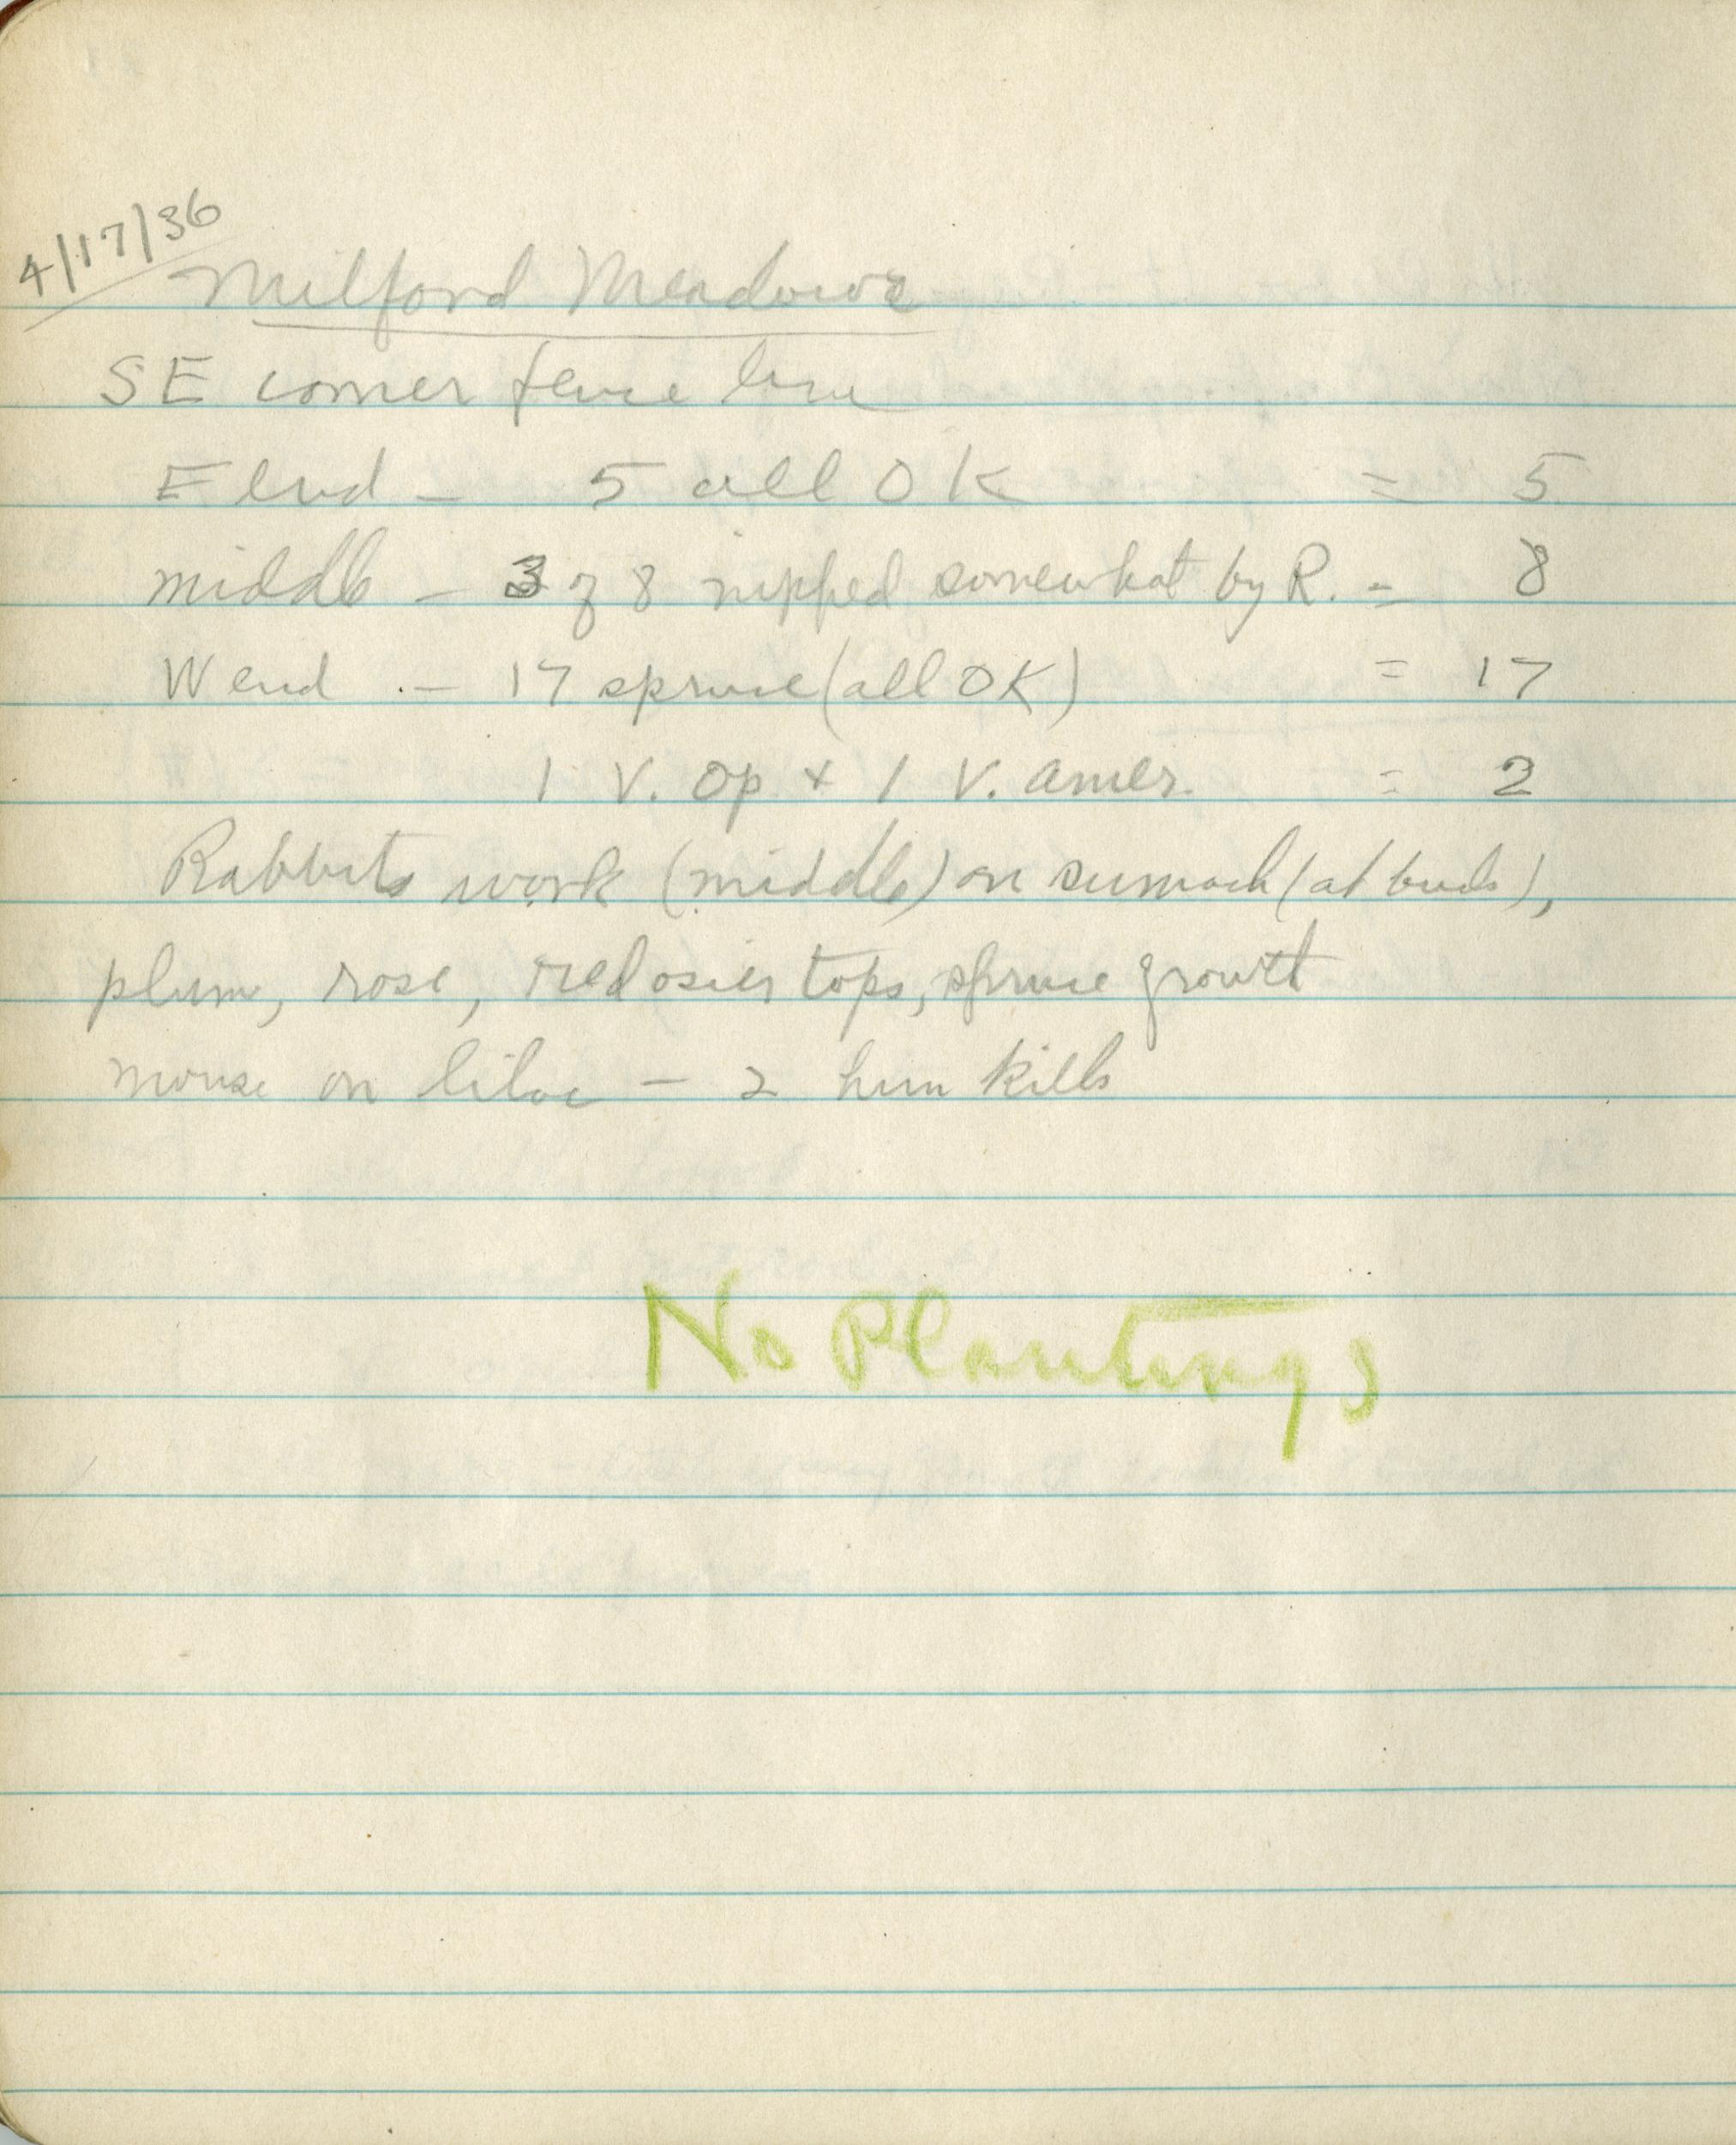 4/17/36
Milford Meadows
SE corner fence line
E end – 5 all OK = 5
middle – 3 of 8 nipped somewhat by R. = 8
W end – 17 spruce (all OK) = 17
1 V. Op + 1 V. amer. = 2
Rabbits work (middle) on sumach (at buds),
plum, rose, red osier tops, spruce growth
mouse on lilac – 2 hun kills
No Plantings